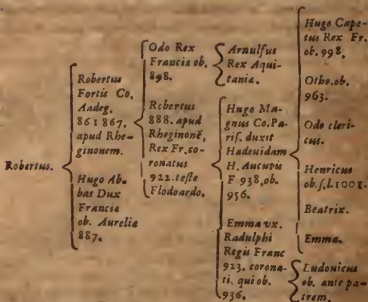 Robertus.
Robertus
Fortis Co.
Andeg.
861 867.
apud Rhe-
ginonem.
Hugo Ab-
bas Dux
Francia
ob. Aurelia
887.
Odo Rex
Francia ob.
898.
Robertus
888. apud
Rheginonē.
Rex Fr. co-
ronatus
922. teste
Flodoardo.
Arnulfus
Rex Aqui-
tania.
Hugo Ma-
gnus Co. Pa-
ris. duxit
Hadeuidam
H. Aucupis
F 938, ob.
956.
Emma vx.
Radulphi
Regis Franc
923. corona-
ti. qui ob.
936.
Hugo Cape-
tus Rex Fr.
ob. 998.
Otho. ob.
963.
Odo cleri-
cus.
Henricus
ob. s. l. 1001.
Beatrix.
Emma.
Ludouicus
ob. ante pa-
trem.